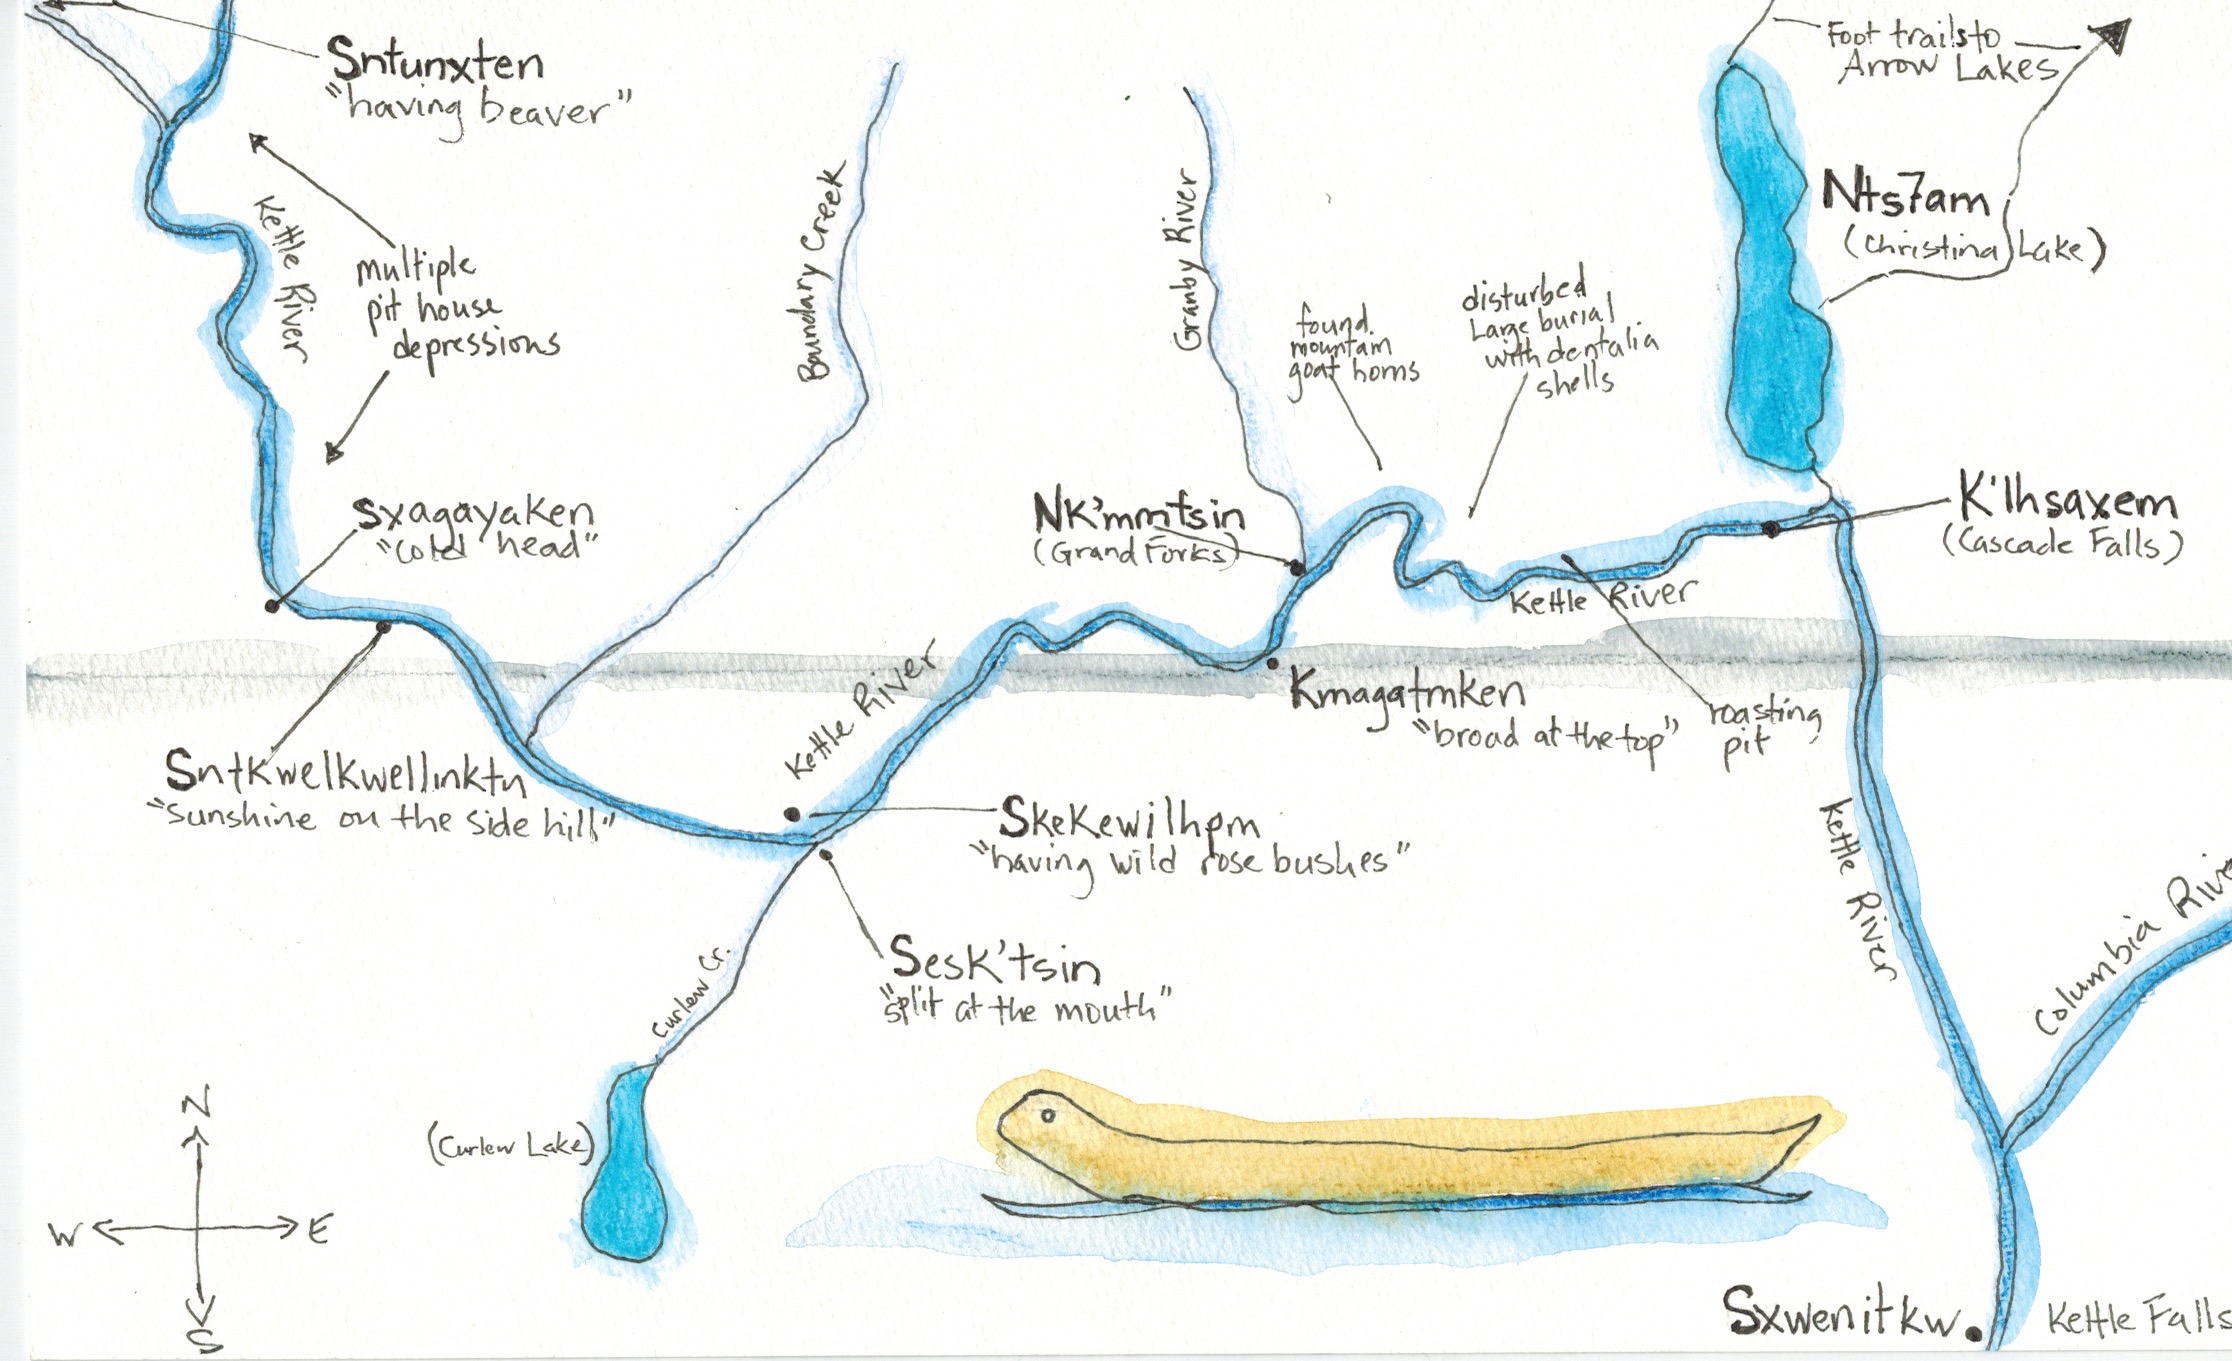 Sntunxten
"having beaver"
Foot trails to
Arrow Lakes
Kettle River
multiple
pit house
depressions
Boundary Creek
Granby River
found
mountain
goat horns
disturbed
Large burial
with dentalia
shells
Nts7am
(Christina Lake)
sxagayaken
"cold head"
NK'mmtsin
(Grand Forks)
K'lhsaxem
(Cascade Falls)
Kettle River
Kettle River
Kmagatmken
"broad at the top"
roasting
pit
Sntkwelkwellinktn
"sunshine on the side hill"
Skekewilhpm
"having wild rose bushes"
Kettle River
Sesk'tsin
"split at the mouth"
Curlew Cr.
Columbia
(Curlew Lake)
N
W E
S
Sxwenitkw
Kettle Falls